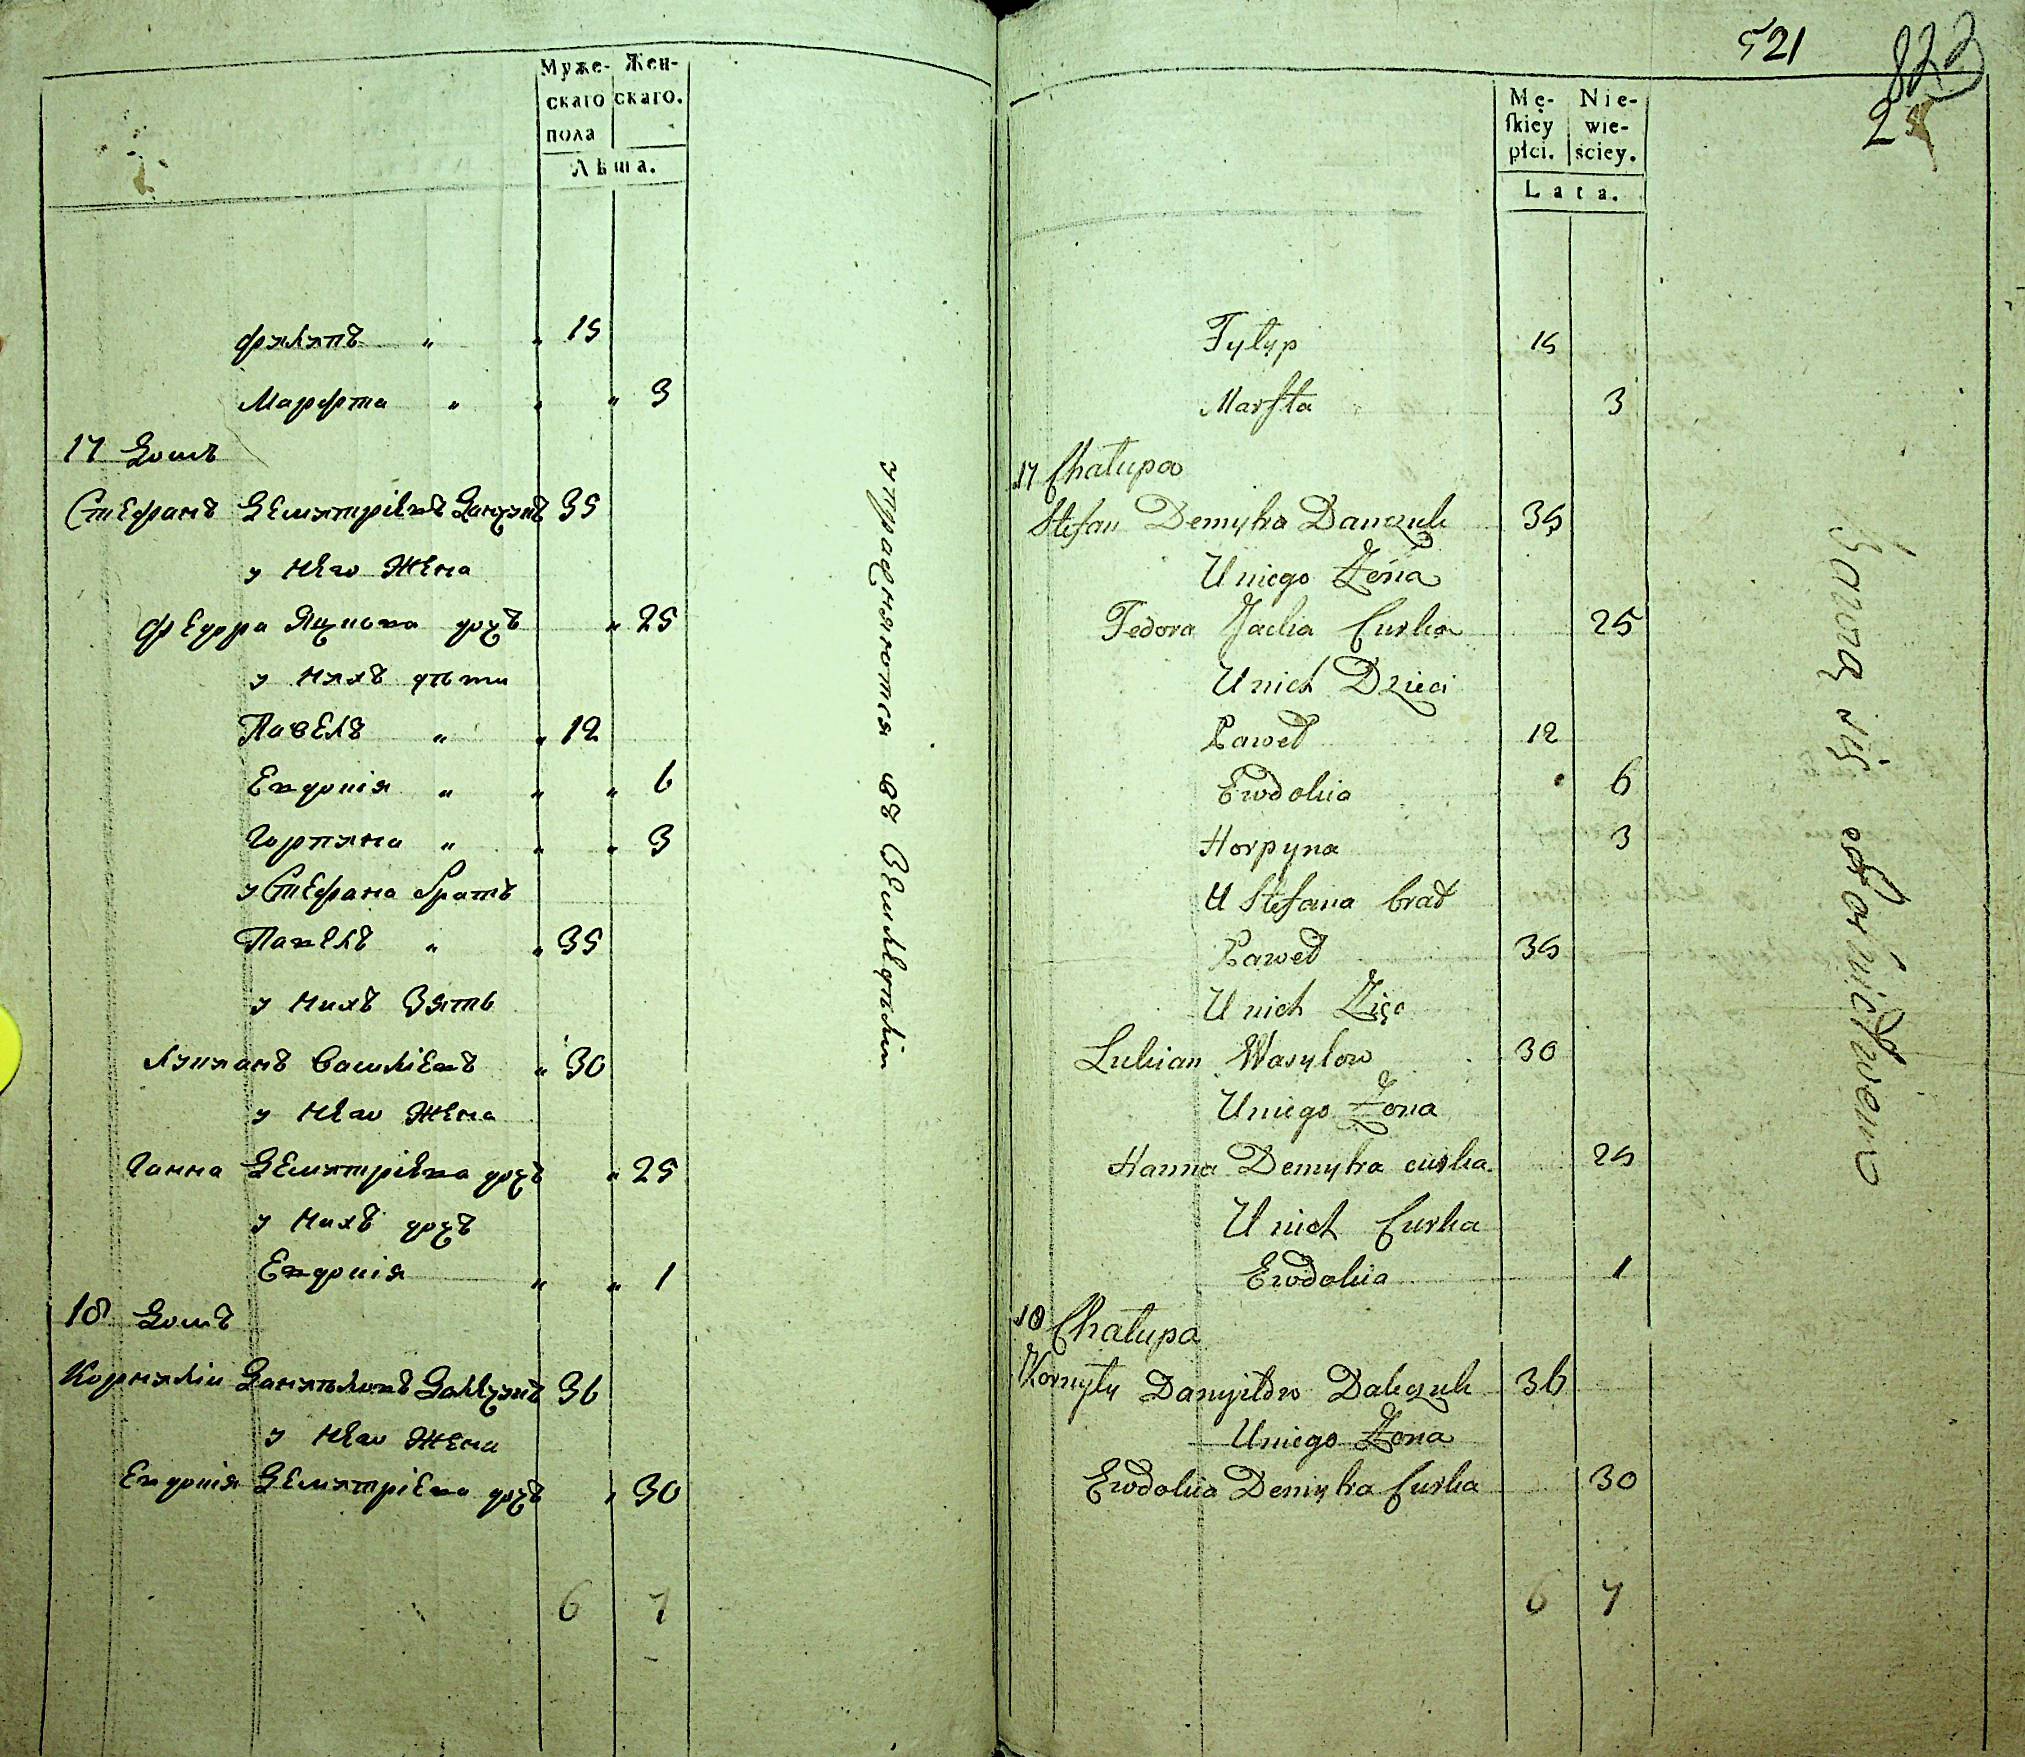 Муже- Жен-
скаго скаго.
пола
Лѣта.
Филипъ " " 15
Марфта " " " 3
17 Домъ
Стефанъ Демитріевъ Данчукъ 35
у него Жена
Федора Яцкова дочъ " 25
у нихъ дѣти
Павелъ " " 12
Евдокія " " " 6
Горпина " " " 3
у Стефана братъ
Павелъ " " 35
у нихъ Зять
Лукианъ Василіевъ " 30
у него Жена
Ганна Демитріева дочъ " 25
у нихъ дочъ
Евдокія " " 1
18 Домъ
Корнилій Данильовъ 36
у него Жена
Евдокія Демитріева дочъ " 30
6 7
упражняются въ Земледѣліи
521
822
2
Mę- Nie-
skiey wie-
płci. ściey.
Lata.
Fylyp 15
Marfta 3
17 Chałupa
Stefan Demytra Danczuk 35
U niego Żona
Fedora Jacka Curka 25
U nich Dzieci
Paweł 12
Ewdokia 6
Horpyna 3
U Stefana brat
Paweł 35
U nich Zięć
Lukian Wasylow 30
U niego Żona
Hanna Demytra curka 25
U nich Curka
Ewdokia 1
18 Chałupa
Kornyły Danyiłow Dakczuk 36
U niego Żona
Ewdokia Demytra Curka 30
6 7
Bawią się około rolnictwem